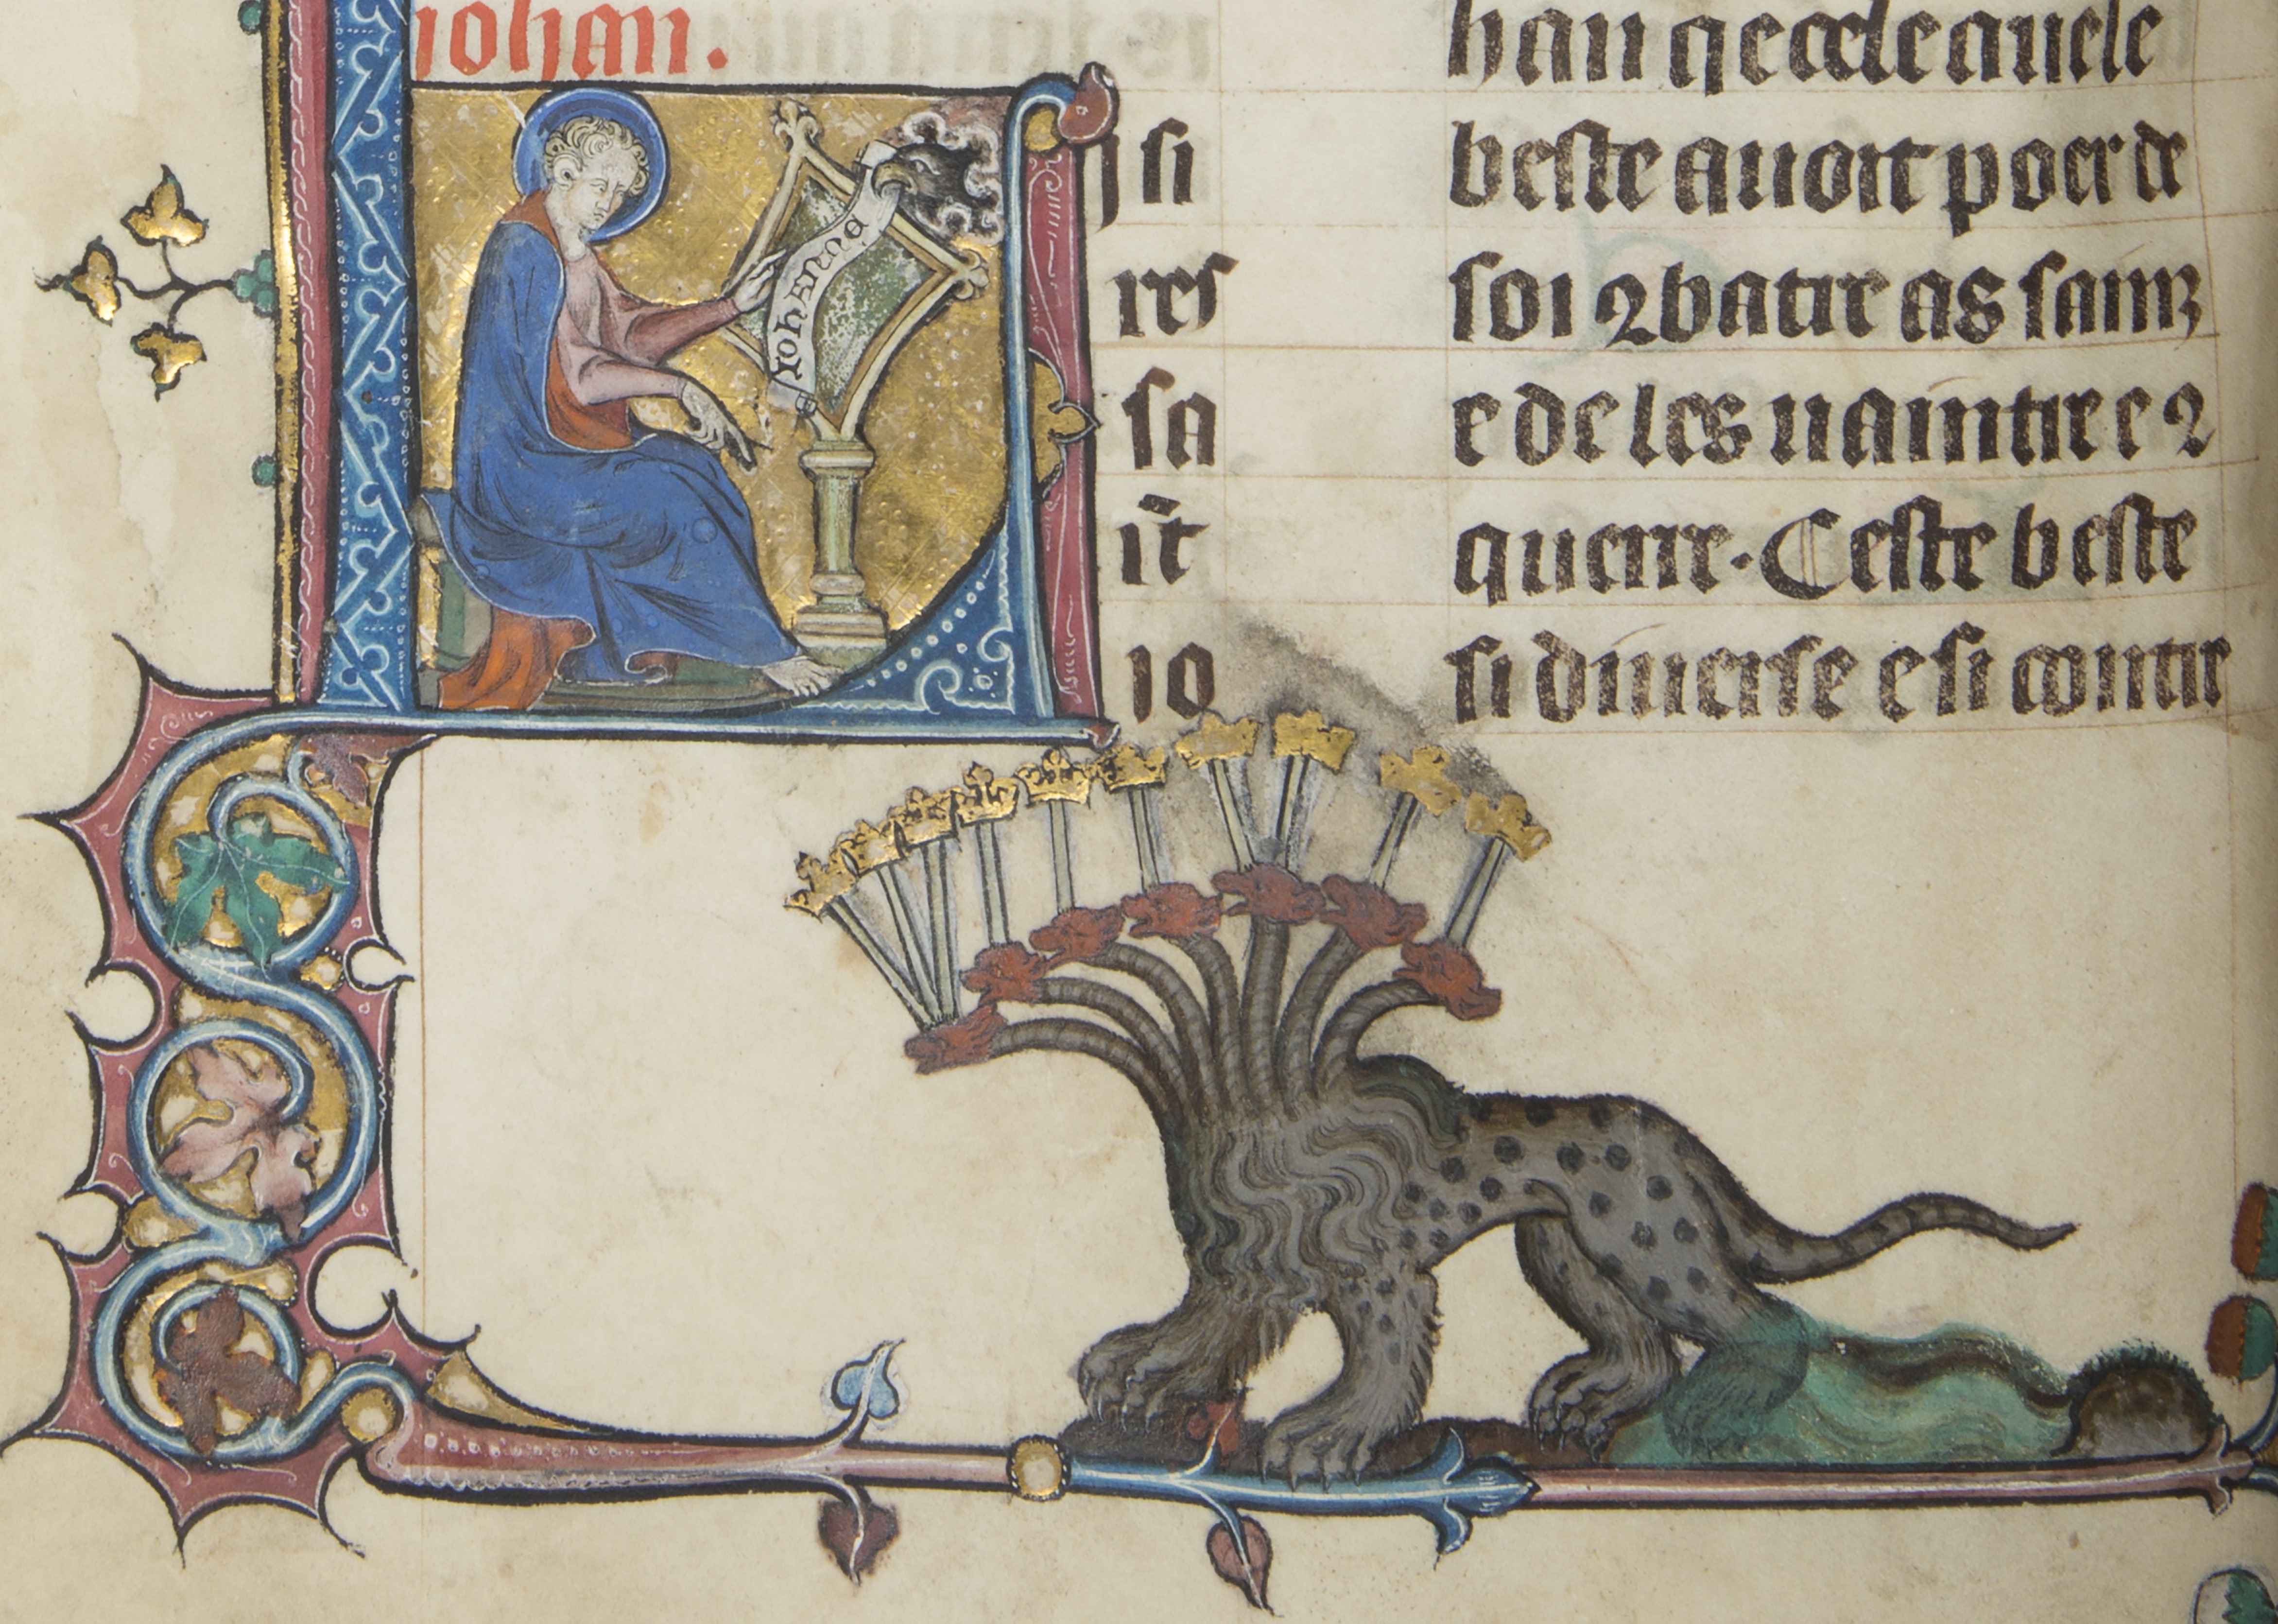 iohan.
iohanna
si
res
sa
it̄
io
han q̄ecele avele
beste auoit poer de
soi ꝯbatre as sainz
e de les uaintre e ꝯ
querre. Ceste beste
si diuerse e si contre